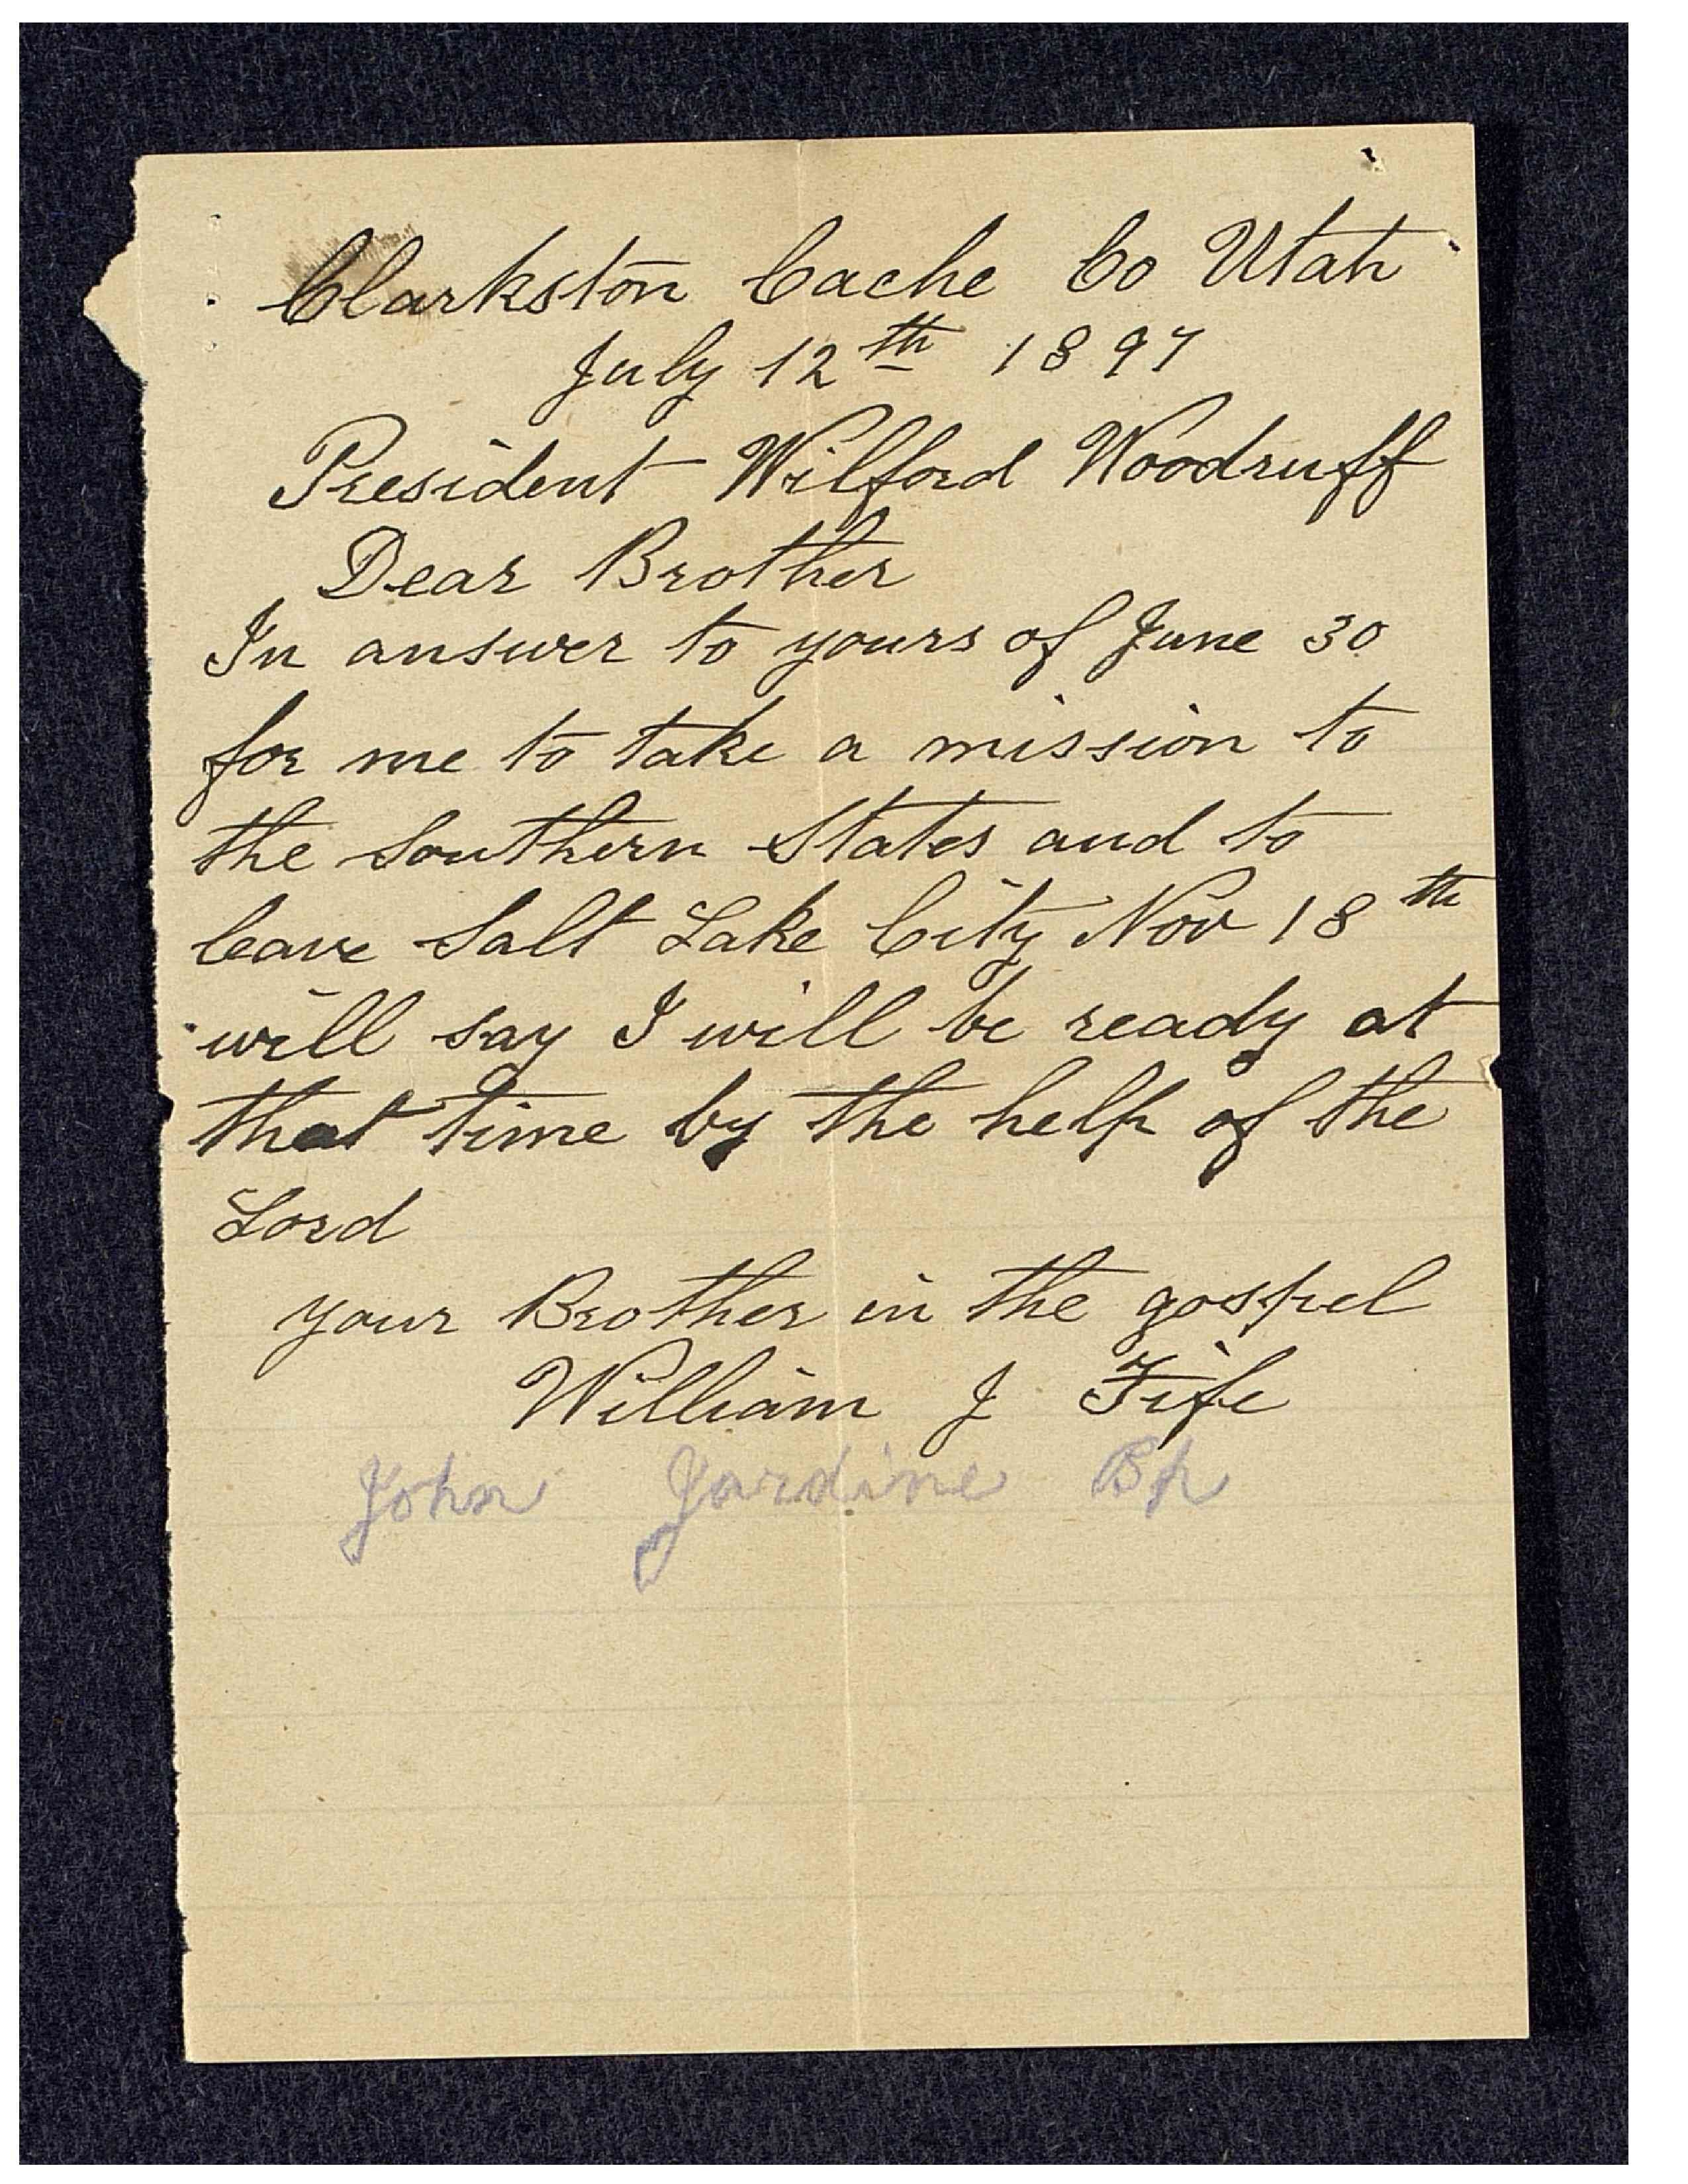 Clarkston Cache Co Utah
July 12th 1897
President Wilford Woodruff
Dear Brother
In answer to yours of June 30
for me to take a mission to
the Southern States and to
leave Salt Lake City Nov 18th
will say I will be ready at
that time by the help of the
Lord
your Brother in the gospel
William J Fife
John Jardine Bp